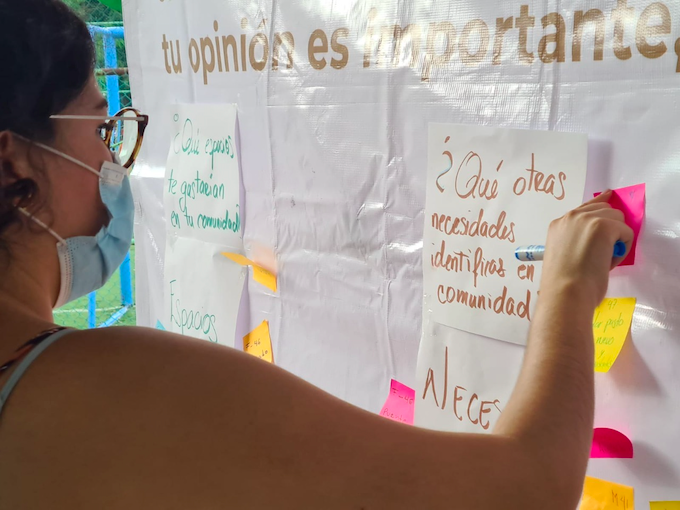 tu opinión es importante,
¿Qué espacios
te gustarían
en tu comunidad?
Espacios
¿Qué otras
necesidades
identificas en
comunidad
NECES